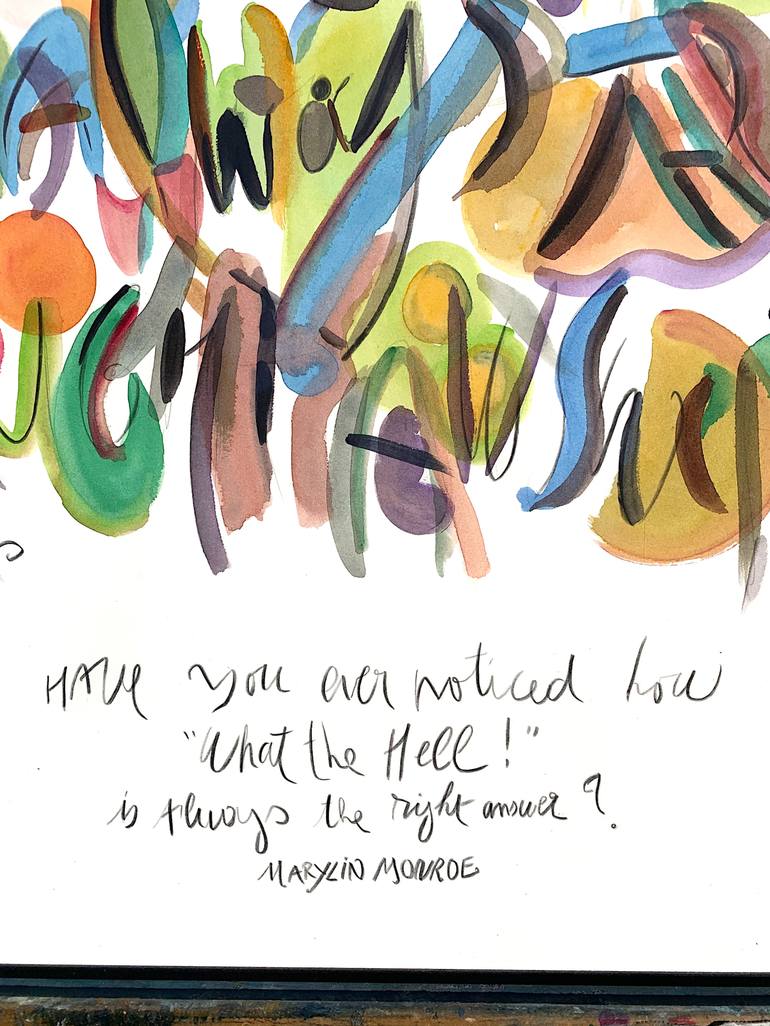 HAVE you ever noticed how
"What the Hell!"
is Always the right answer?
MARYLIN MONROE